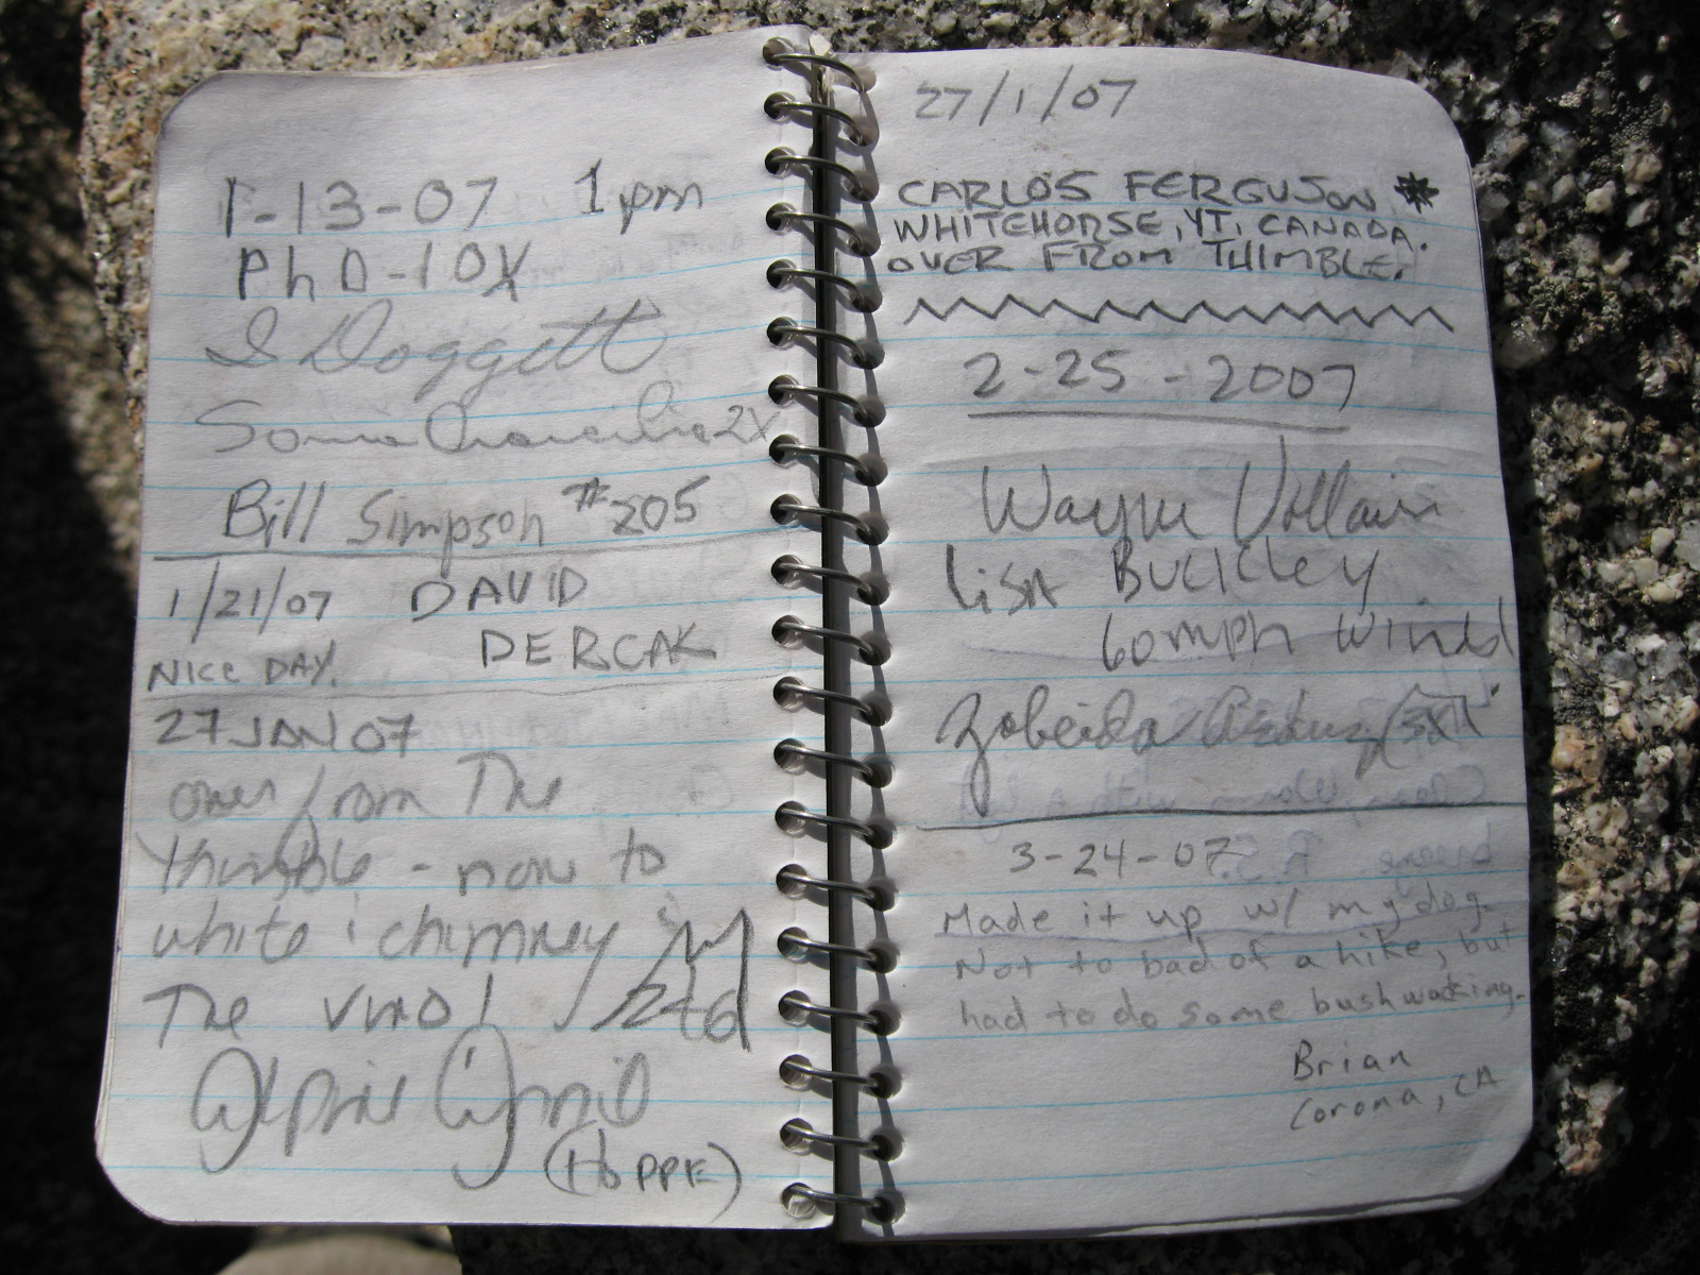 1-13-07 1pm
PhD-10X
S Doggett
2X
Bill Simpson #205
1/21/07 DAVID
DERCAK
NICE DAY.
27 JAN 07
over from The
Thimble - now to
white chimney
The
(HOPPE)
27/1/07
CARLOS FERGUSON *
WHITEHORSE, YT, CANADA.
OVER FROM THIMBLE.
2-25-2007
Wayne Vollaire
Lisa Buckley
60 mph wind
Zobeida
3-24-07
Made it up w/ my dog.
Not to bad of a hike, but
had to do some bushwacking.
Brian
Corona, CA